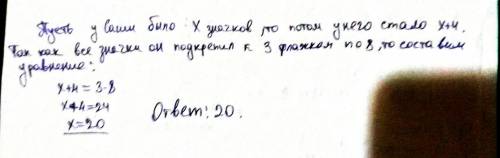 Пусть у саши было X значков, то потом у него стало x+4.
Так как все значки он подкрепил к 3 флажкам по 8, то составим
уравнение:
x+4=3·8
x+4=24
x=20
Ответ: 20.